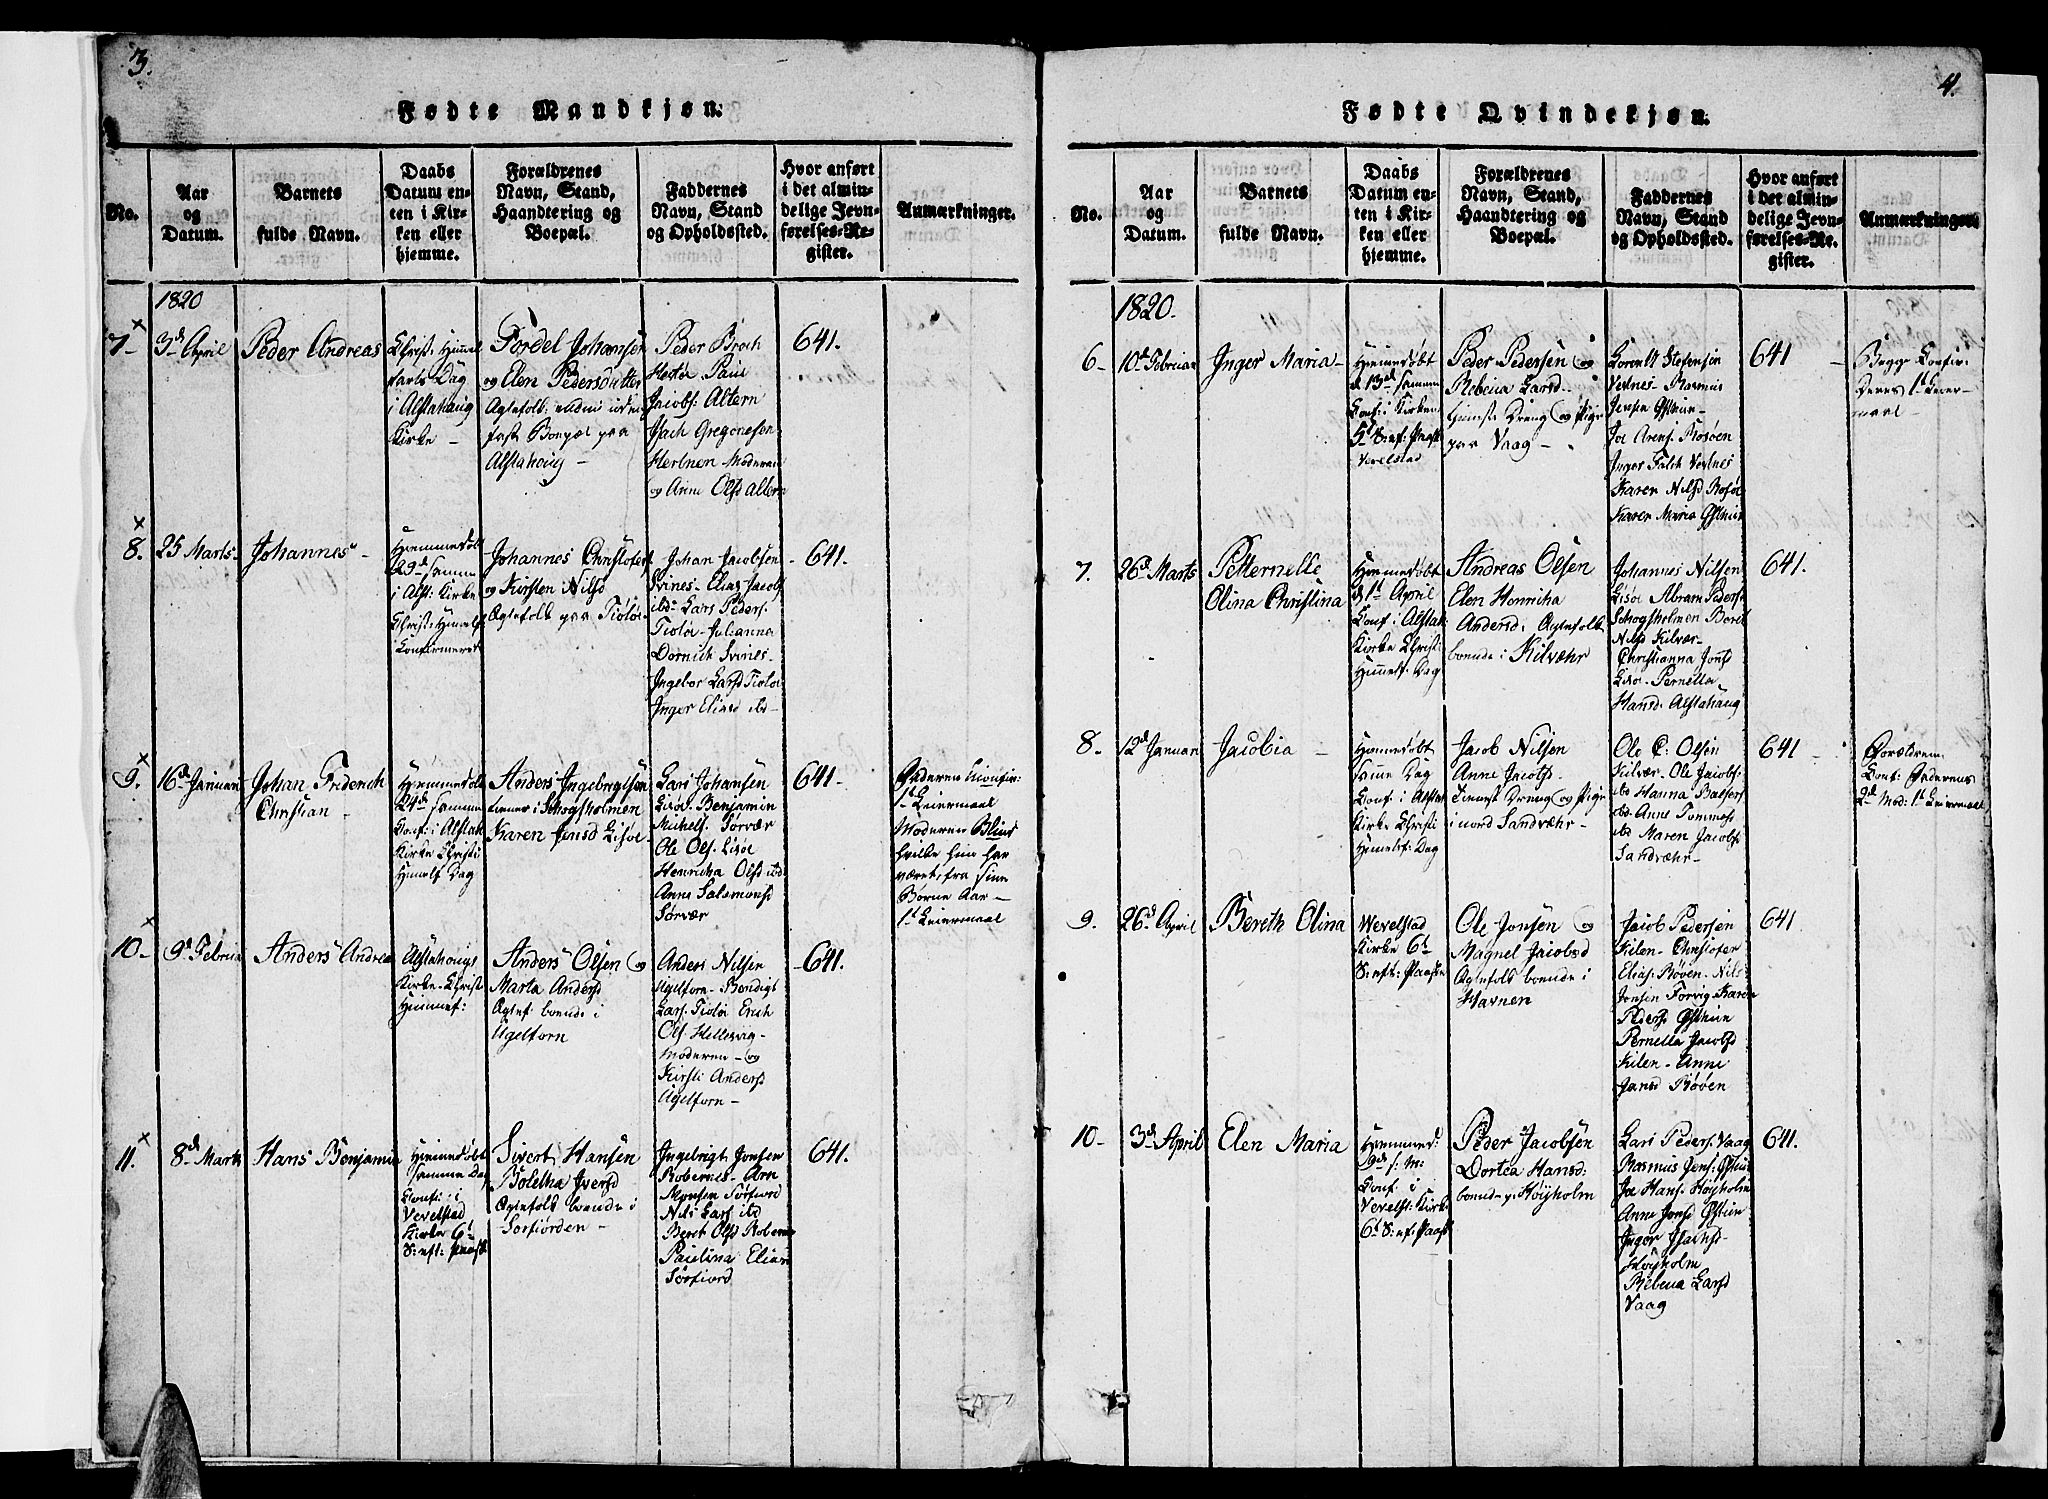 3.
Fødte Mandkjøn.
No.
Aar
og
Datum.
Barnets
fulde Navn.
Daabs
Datum en-
ten i Kir-
ken eller
hjemme.
Forældrenes
Navn, Stand,
Haandtering og
Boepæl.
Faddernes
Navn, Stand
og Opholdssted.
Hvor anført
i det almin-
delige Jevn-
førelses-Re-
gister.
Anmærkninger.
1820
7-
3d April
Peder Andreas
Christ: Himmel
farts Dag
i Alstahaug
Kirke -
Tordel Johansen
og Elen Pedersdatter
Ægtefolk
fast Boepæl paa
Alstahoug -
Peder Broch
Paul
Jacobs: Altern
Isach Gregoriesen
Moderen
og Anne Olsd Altern
641.
8.
25 Marts
Johannes -
Hjemmedøbt
29d samme
i Alst: Kirke
Christ: Himelf
Confirmeret
Johannes Christofers
og Kirsten Nilsd
Ægtefolk paa Tioløe
Johan Jacobsen
Svines - Elias Jacobs
ibd- Lars Peders:
Tioløe - Julianna
Dornich Svines -
Ingebor Larsd Tioløe
Inger Eliasd ibd -
641.
9.
16d Januar
Johan Friderich
Christian -
Hjemmedøbt
24d samme
Conf: i Alstah
Kirke Christi
Himelf Dag
Anders Ingebrigtsen
tiener i Schogsholmen
Karen Jensd Lisøe
Lars Johansen
Lisøe. Benjamin
Michels. Sørvær
Ole Ols. Lisøe
Henricha Olsd ibd
Anne Salamonsd
Sørvær
641-
Faderen
1ste Leiermaal
Moderen Blind
hvilke hun har
været, fra sine
Børne Aar -
1t Leiermaal
10-
9d Februar
Anders Andrea
Alstahougs
Kirke - Christ
Himmef:
Anders Olsen og
Marta Andersd
Ægtef: boende i
Ugelforn
Anders Nilsen
Ugelforn - Bendigt
Lars. Tioløe Erich
Ols Hellesvig -
Moderen - og
Kirsti Andersd
Ugelforn -
641.
11.
8d Marts
Hans Benjamin
Hiemmedøbt
samme Dag
Conf: i
Vevelstad
Kirke 6t
S: eft: Paask
Sivert Hansen
Boletha Iversd
Ægtefolk boende i
Sørfiorden -
Ingebrigt Jonsen
Robernes - Arn
Monsen Sørfiord
Nils Lars ibd
Beret Olsd Robernes
Paulina Elias
Sørfiord
641.
4.
Fødte Qvindekjøn.
No.
Aar
og
Datum.
Barnets
fulde Navn.
Daabs
Datum en-
ten i Kir-
ken eller
hjemme.
Forældrenes
Navn, Stand,
Haandtering og
Boepæl.
Faddernes
Navn, Stand
og Opholdssted.
Hvor anført
i det almin-
delige Jevn-
førelses-Re-
gister.
Anmærkninger.
1820.
6-
10d Februar
Inger Maria -
Hjemmedøbt
d 13d samme
Conf: i Kirken
5t S: ef: Paask
Vevelstad
Peder Pedersen og
Rebecca Larsd.
tienest Dreng og Pige
paa Vaag -
Stefensen
Rasmus
Jensen Østhun -
Joe Arens: Rosøen
Inger Falch
Karen Nilsd Rosøe
Karen Maria Østhun
641
Begge Confir-
Deres 1t Leier-
maal -
7.
26d Marts
Petternelle
Olina Christina
Hjemmedøbt
d 1t April
Conf: i Alstah
Kirke Christi:
Himmelf: Dag
Andreas Olsen
Elen Henricha
Andersd: Ægtefolk
boende i Kilvæhr
Johannes Nilsen
Lisøe Abram Peders
Schogsholmen Beret
Nilsd Kilvær -
Christianna Jonsd
Lisøe - Pernella
Hansd. Alstahaug
641.
8.
12d Januar
Jacobia -
Hjemmedøbt
samme Dag
Conf: i Alstah
Kirke Christi
Himelsf: Dag
Jacob Nilsen
Anne Jacobsd.
tienest Dreng og Pige
i nord Sandvæhr -
Ole C: Olsen
Kilvær - Ole Jacobs:
ibd Hanna Balsers
ibd - Anne Tommesd
ibd Maren Jacobsd
Sandvæhr -
641 -
Forældrene
Conf: Faderens
2d Mod: 1t Leiermaal
9.
26d April
Bereth Olina
Wevelstad
Kirke 6t
S: eft: Paaske
Ole Jonsen og
Magnel Jacobsd
Ægtefolk boende i
Havnen
Jacob Pedersen
Kilen - Christofer
Elias. Røven - Nils
Jonsen Forvig - Karen
Pedersd Østhun
Pernella Jacobsd
Kilen - Anne
Jansd Røven
641
10-
3d April
Elen Maria
Hjemmed:
9d s: M:
Conf: i
Vevelst: Kirke
6t S: ef: Paask
Peder Jacobsen
Dortea Hansd:
boende p. Høyholm
Lars Peders: Vaag
Rasmus Jens: Østhun
Joe Hans: Høyholm
Anne Jonsd Østhun
Inger Isachsd -
Høyholm
Rebecca Larsd
Vaag
641.